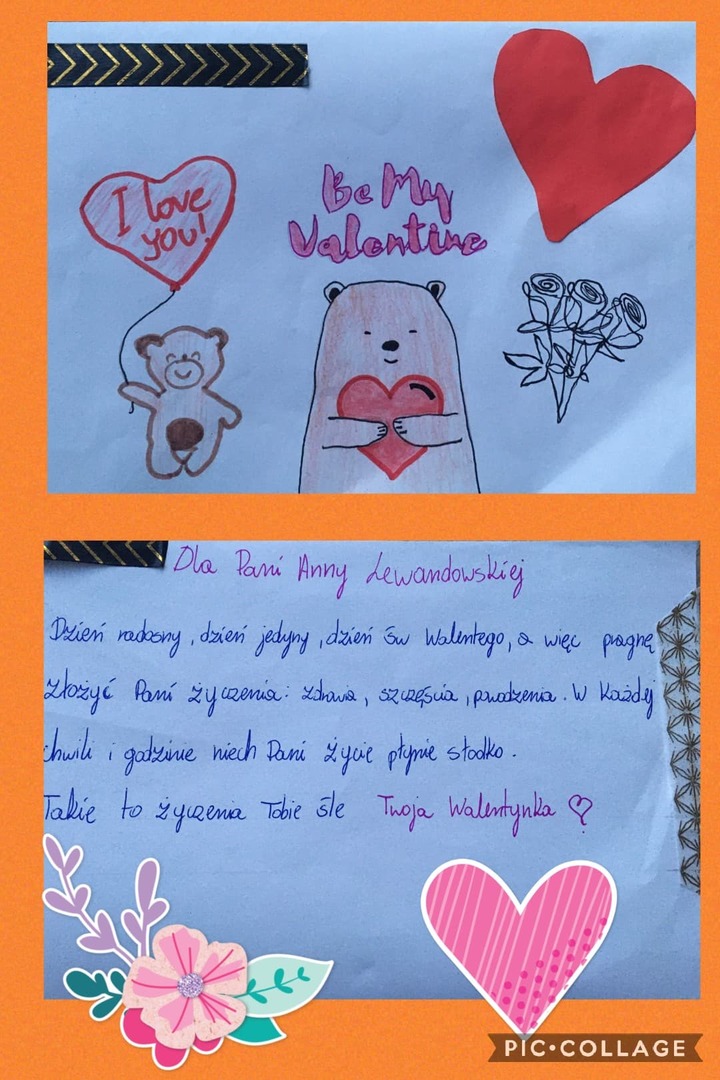 I love
you!
Be My
Valentine
Dla Pani Anny Lewandowskiej
Dzień radosny, dzień jedyny, dzień św Walentego, a więc pragnę
złożyć Pani życzenia: zdrowia, szczęścia, powodzenia. W każdej
chwili i godzinie niech Pani życie płynie słodko.
Takie to życzenia Tobie śle Twoja Walentynka
PIC•COLLAGE